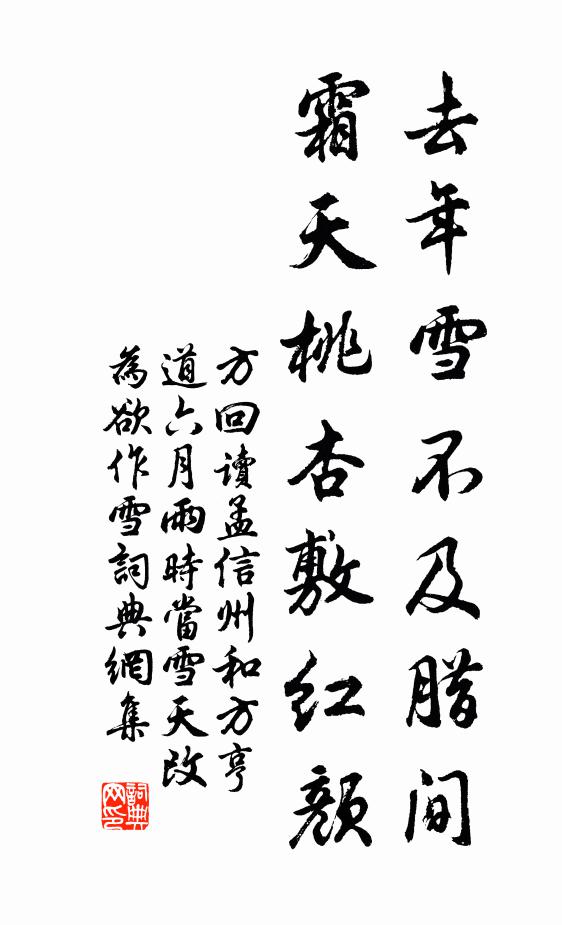 去年雪不及腊间
霜天桃杏敷红颜
方回读孟信州和方亨
道六月雨時當雪天改
為欲作雪詞典網集
詞典网印